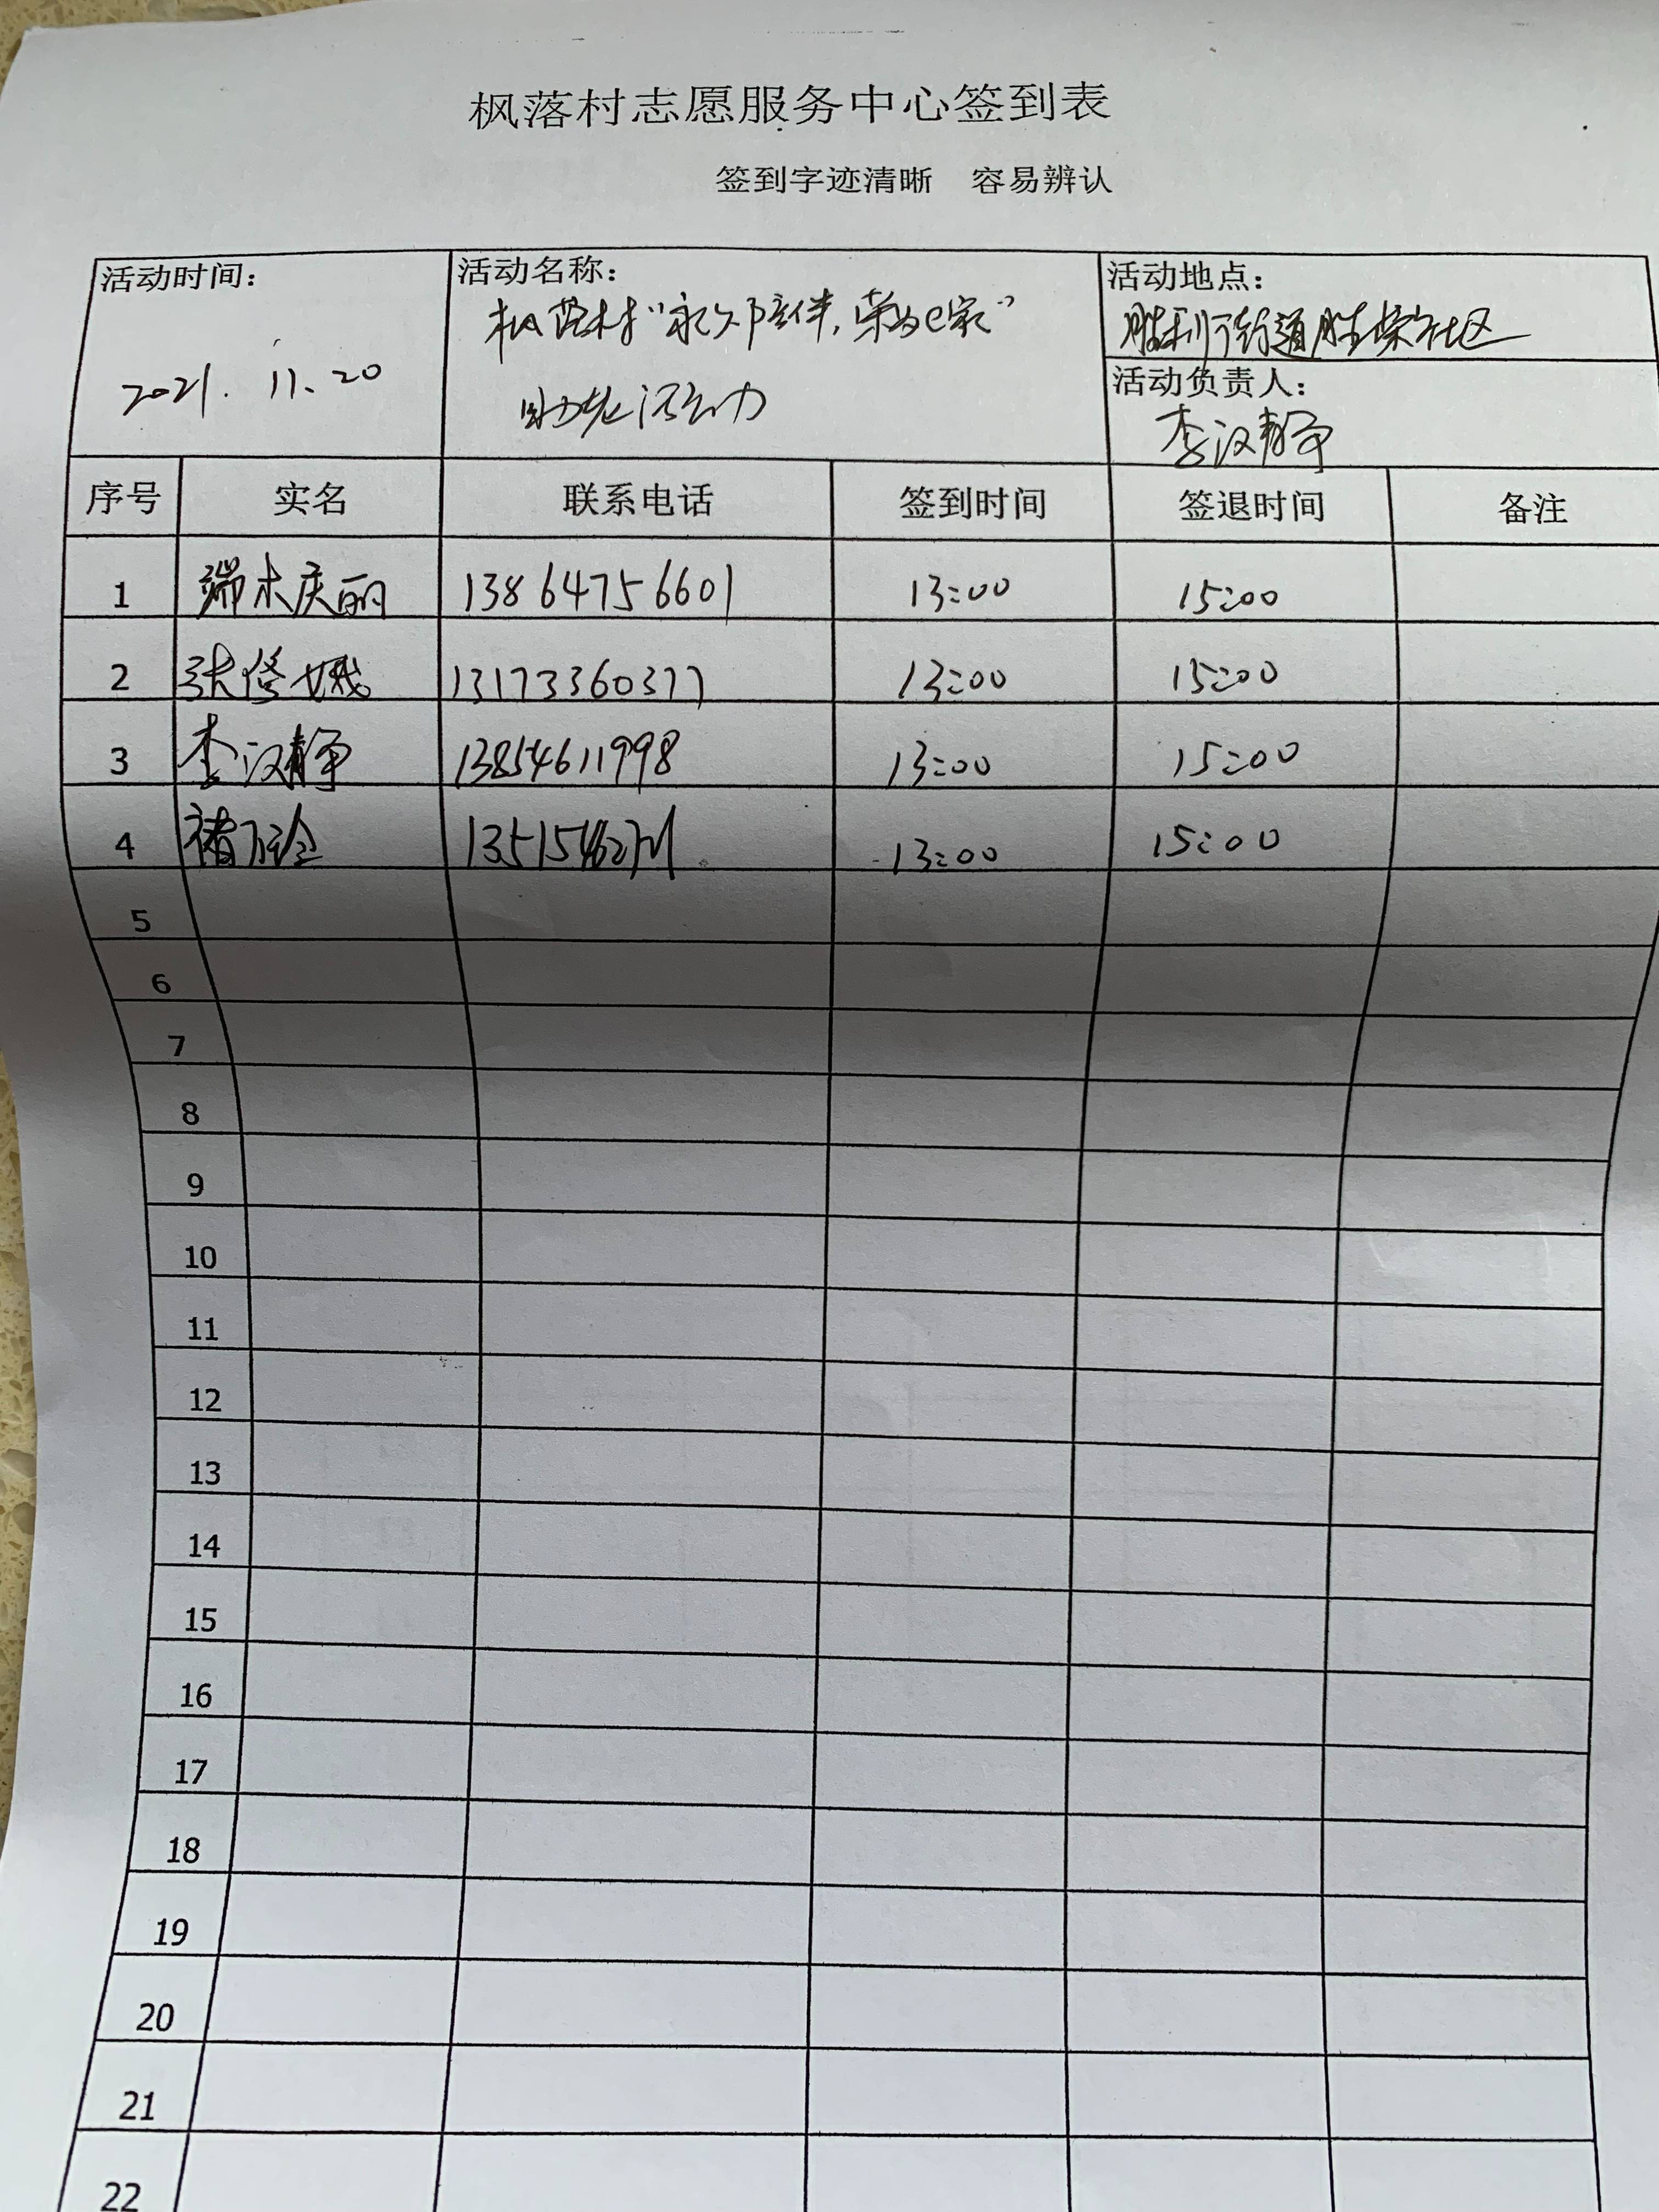 枫落村志愿服务中心签到表
签到字迹清晰 容易辨认
活动时间：
2021. 11. 20
活动名称：
枫落村“永久陪伴，荣的e家”
助老活动
活动地点：
胜利街道胜荣社区
活动负责人：
李汉静
序号 实名 联系电话 签到时间 签退时间 备注
1 端木庆丽 13864756601 13:00 15:00
2 张 13173360377 13:00 15:00
3 李汉静 13854611998 13:00 15:00
4 褚 13:00 15:00
5
6
7
8
9
10
11
12
13
14
15
16
17
18
19
20
21
22